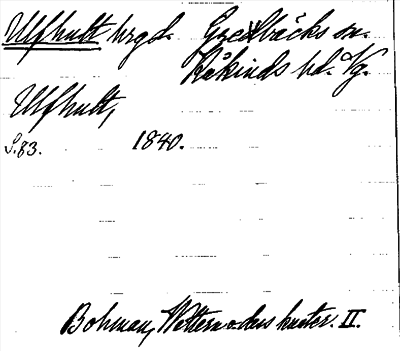 Ulfhult hrgd. Gredbäcks sn.
Kåkinds hd. Vg.
Ulfhult,
S. 83. 1840.
Bohman, Wettern o. dess kuster. II.